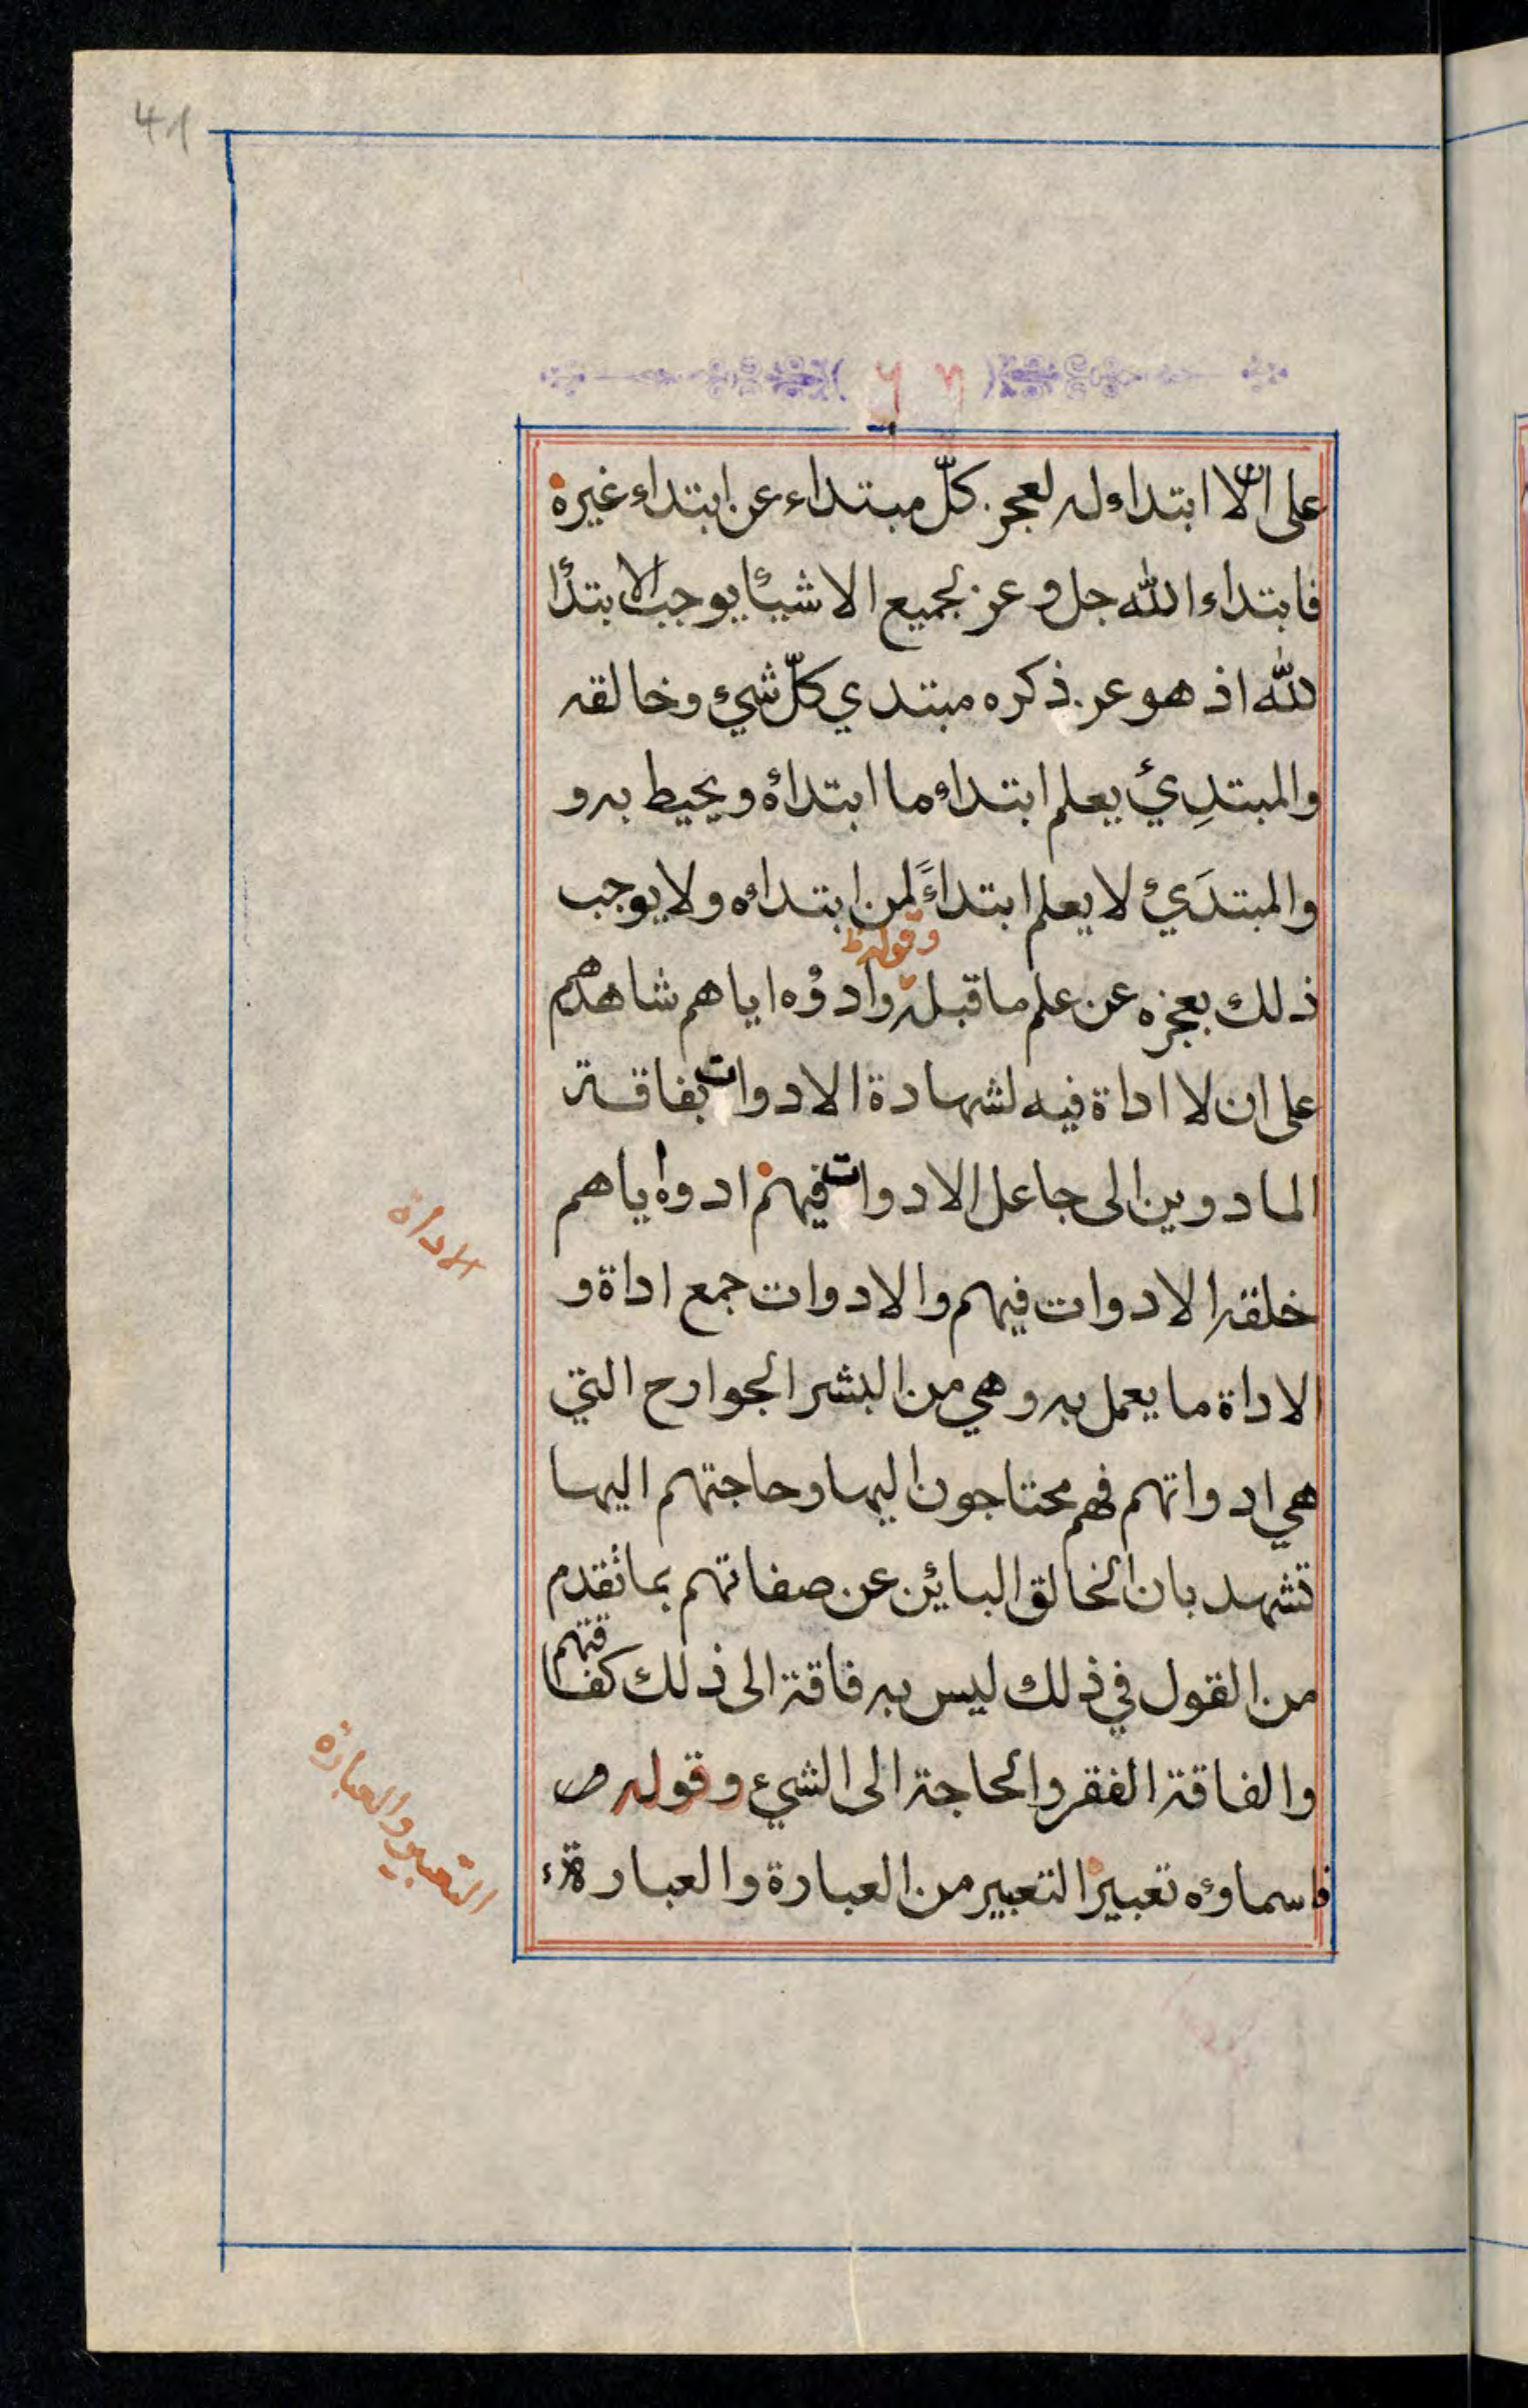 على ان لا ابتداء له لعجز كلّ مبتداء عن ابتداء غيره
فابتداء الله جل وعز لجميع الاشيئا يوجب الابتدا
لله اذ هو عز ذكره مبتدي كلّ شيء وخالقه
والمبتدِئ يعلم ابتداء ما ابتداه ويحيط به و
والمبتدَئ لا يعلم ابتداءً لمن ابتداه ولا يوجب
وقوله ظ
ذلك بعجزه عن علم ما قبله وادؤه اياهم شاهدهم
على ان لا اداة فيه لشهادة الادوات بفاقة
المادوين الى جاعل الادوات فيهم ادوه اياهم
الاداة
خلقه الادوات فيهم والادوات جمع اداة و
الاداة ما يعمل به وهي من البشر الجوارح التي
هي ادواتهم فهم محتاجون اليها وحاجتهم اليها
تشهد بان الخالق البائن عن صفاتهم بما تقدم
من القول في ذلك ليس به فاقة الى ذلك كفاقتهم
والفاقة الفقر والحاجة الى الشيء وقوله ص
التعبير والعبارة
فاسماوءه تعبير التعبير من العبارة والعبارة